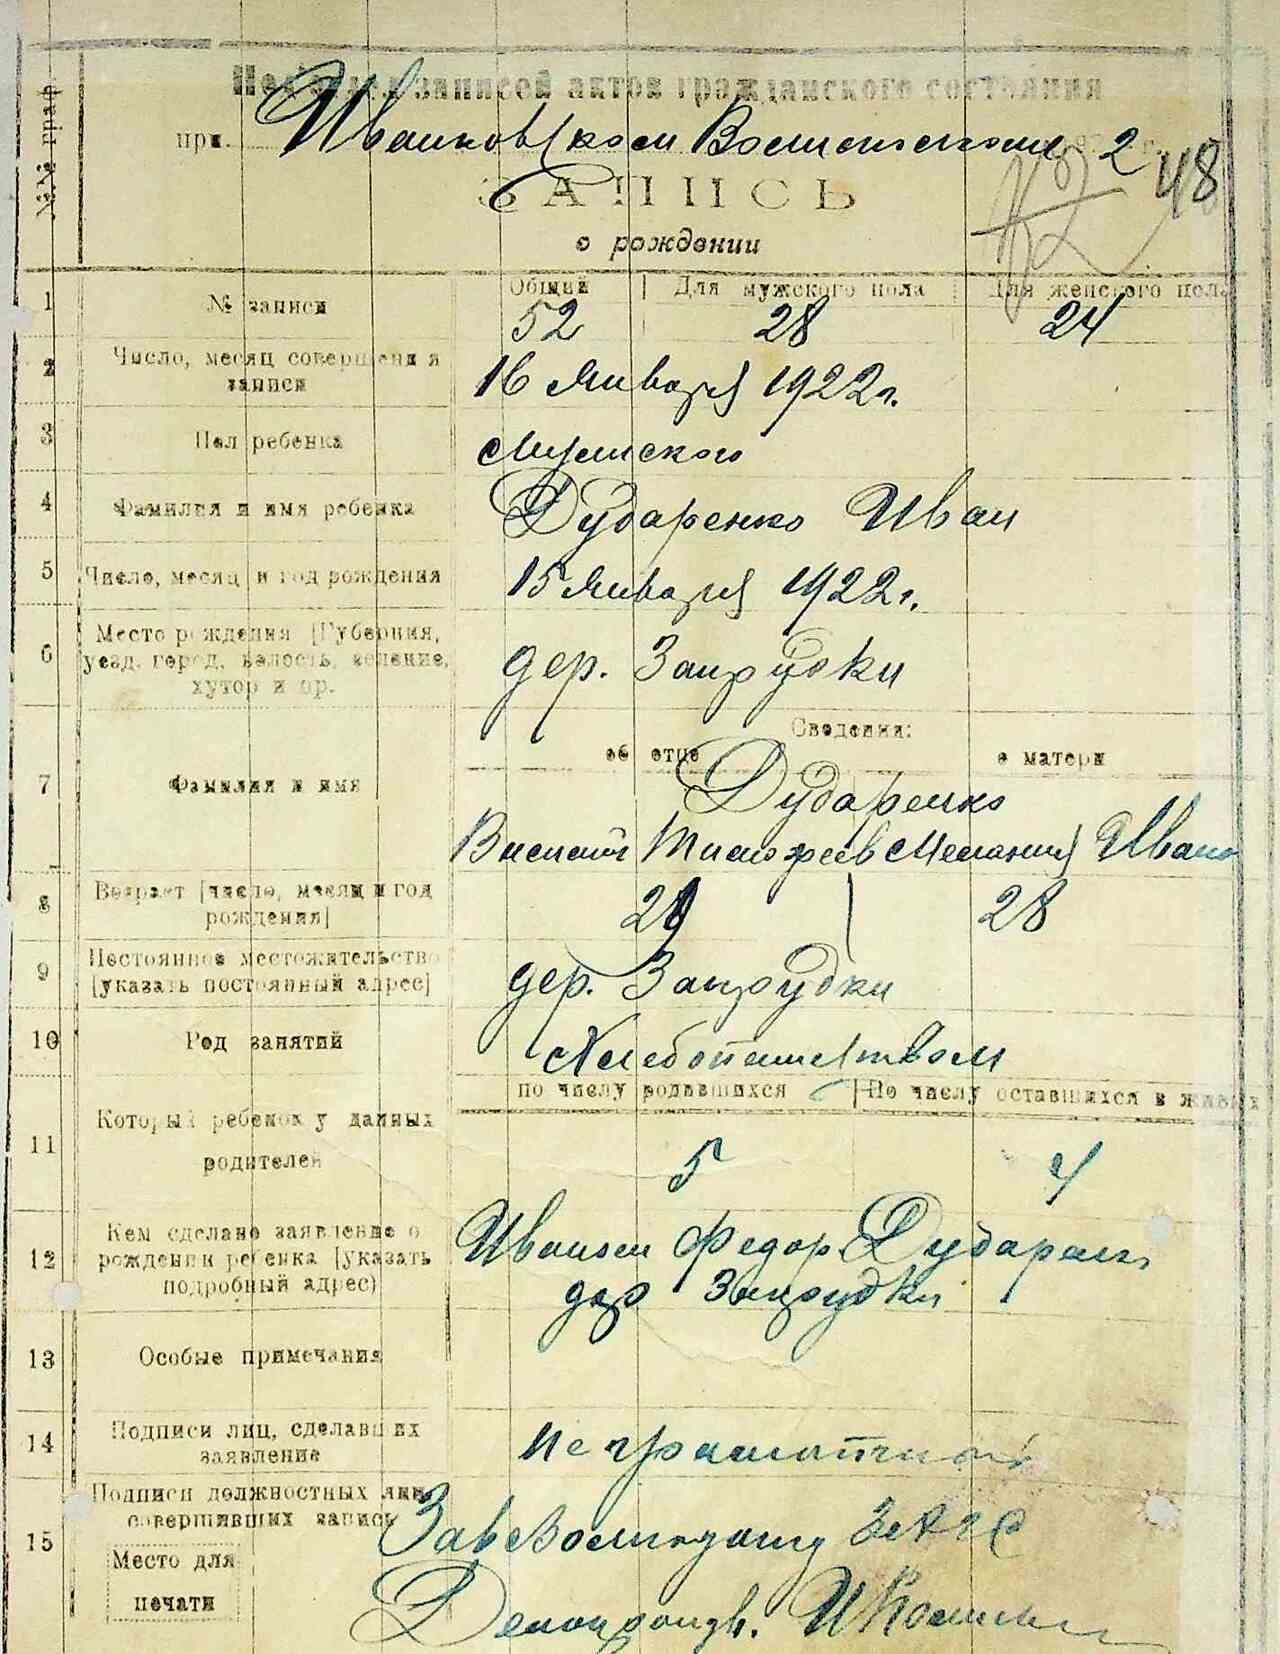 №№ граф
Подотдел записей актов гражданского состояния
при. Иванковском Волисполкоме 2
48
ЗАПИСЬ
о рождении
1 № записи Общий Для мужского пола Для женского пола
52 28 24
2 Число, месяц совершения
записи 16 Января 1922 г.
3 Пол ребенка Мужского
4 Фамилия и имя ребенка Дударенко Иван
5 Число, месяц и год рождения 15 Января 1922 г.
6 Место рождения [Губерния,
уезд, город, волость, селение,
хутор и пр. дер. Запрудки
Сведения:
об отце о матери
7 Фамилия и имя Дударенко
Василий Тимофеев Мелания Ивано
8 Возраст [число, месяц и год
рождения] 29 28
9 Постоянное местожительство
[указать постоянный адрес] дер. Запрудки
10 Род занятий Хлебопашеством
по числу родившихся По числу оставшихся в живых
11 Который ребенок у данных
родителей 5 4
12 Кем сделано заявление о
рождении ребенка [указать
подробный адрес) Федор Дударенк
дер Запрудки
13 Особые примечания
14 Подписи лиц, сделавших
заявление Неграмотный
15 Подписи должностных лиц,
совершивших запись Зав ЗАГС
Место для
печати Делопроизв.